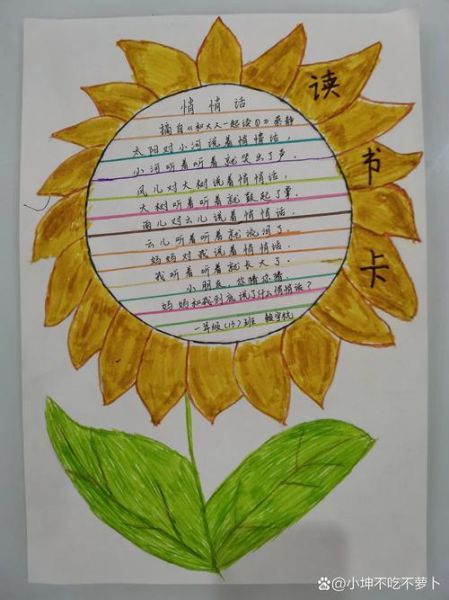 读书卡
悄悄话
摘自《和大人一起读
太阳对小河说着悄悄话,
小河听着听着就笑出了声。
风儿对大树说着悄悄话,
大树听着听着就鼓起了掌。
雨儿对云儿说着悄悄话,
云儿听着听着就
妈妈对我说着悄悄话,
我听着听着就长大了。
小朋友,你猜你猜,
妈妈和我到底说了什么悄悄话?
一年级(13)班
@小坤不吃不萝卜